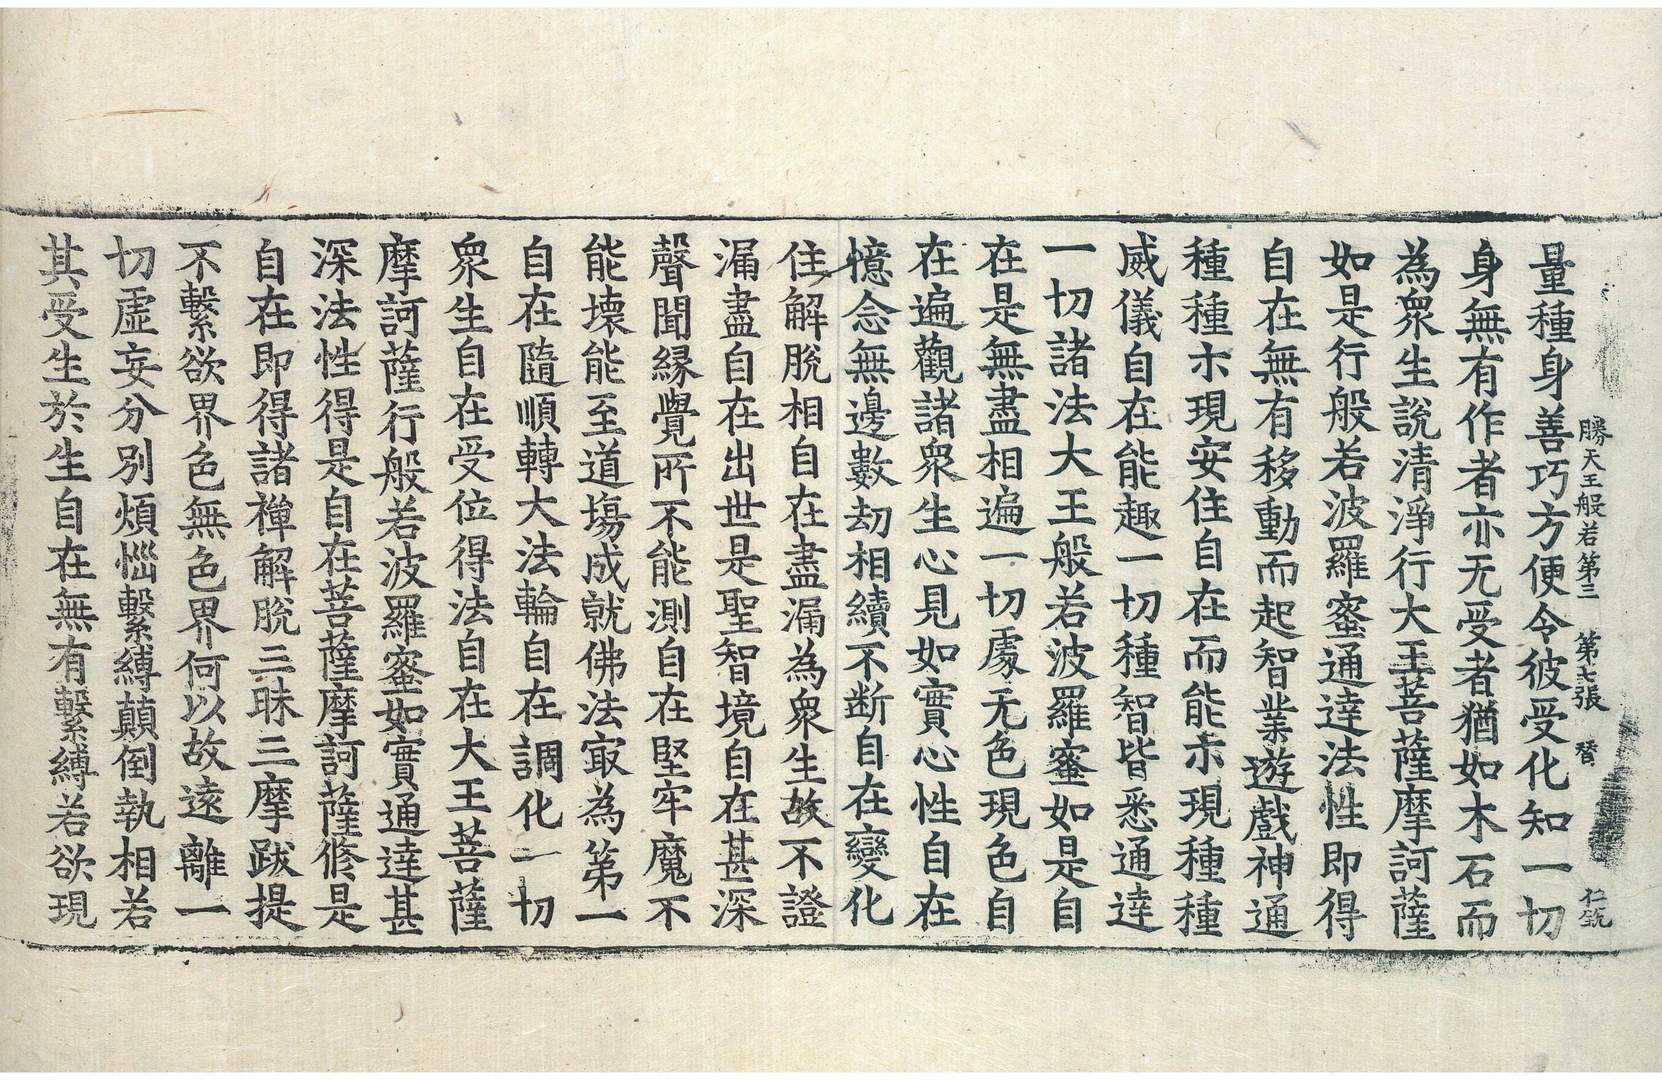 勝天王般若第三 第七張 替 仁銃
量種身善巧方便令彼受化知一切
身無有作者亦无受者猶如木石而
為衆生說清淨行大王菩薩摩訶薩
如是行般若波羅蜜通達法性即得
自在無有移動而起智業遊戲神通
種種示現安住自在而能示現種種
威儀自在能趣一切種智皆悉通達
一切諸法大王般若波羅蜜如是自
在是無盡相遍一切處无色現色自
在遍觀諸衆生心見如實心性自在
憶念無邊數劫相續不断自在變化
住解脫相自在盡漏為衆生故不證
漏盡自在出世是聖智境自在甚深
聲聞縁覺所不能測自在堅牢魔不
能壞能至道場成就佛法㝡為第一
自在隨順轉大法輪自在調化一切
衆生自在受位得法自在大王菩薩
摩訶薩行般若波羅蜜如實通達甚
深法性得是自在菩薩摩訶薩修是
自在即得諸禪解脫三昧三摩跋提
不繫欲界色無色界何以故遠離一
切虛妄分別煩惱繫縛顛倒執相若
其受生於生自在無有繫縛若欲現